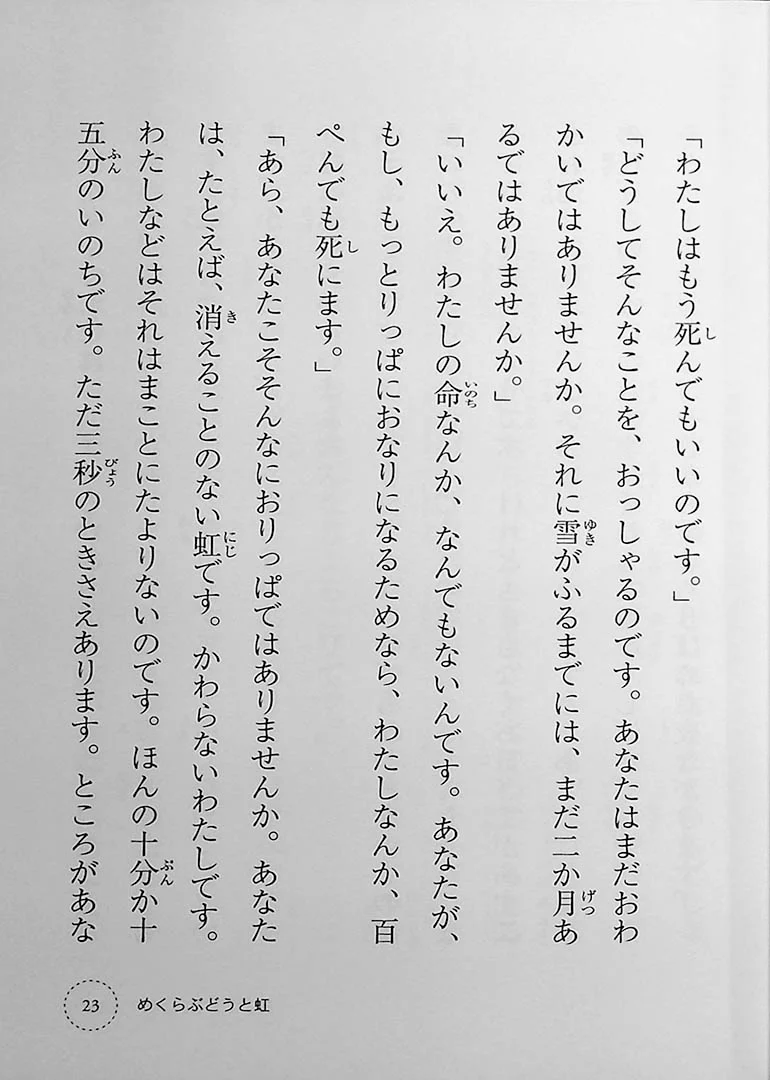 「わたしはもう死んでもいいのです。」
「どうしてそんなことを、おっしゃるのです。あなたはまだおわ
かいではありませんか。それに雪がふるまでには、まだ二か月あ
るではありませんか。」
「いいえ。わたしの命なんか、なんでもないんです。あなたが、
もし、もっとりっぱにおなりになるためなら、わたしなんか、百
ぺんでも死にます。」
「あら、あなたこそそんなにおりっぱではありませんか。あなた
は、たとえば、消えることのない虹です。かわらないわたしです。
わたしなどはそれはまことにたよりないのです。ほんの十分か十
五分のいのちです。ただ三秒のときさえあります。ところがあな
23 めくらぶどうと虹